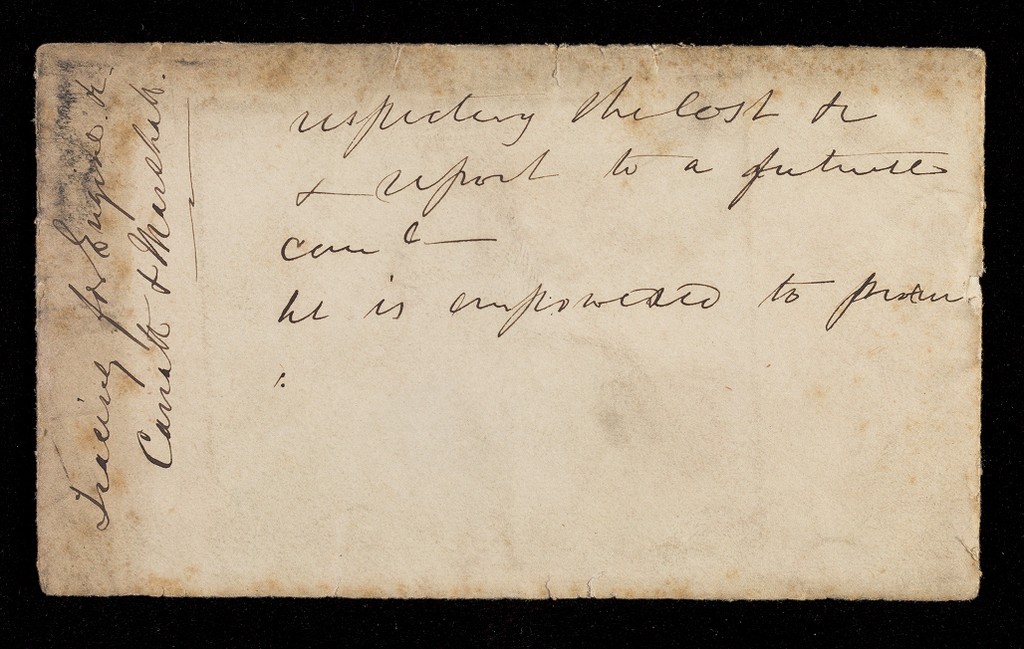 Tracing for Engine &c.
Canal & Marshall.
respecting the Cost &c
& report to a future
comte
he is empowered to